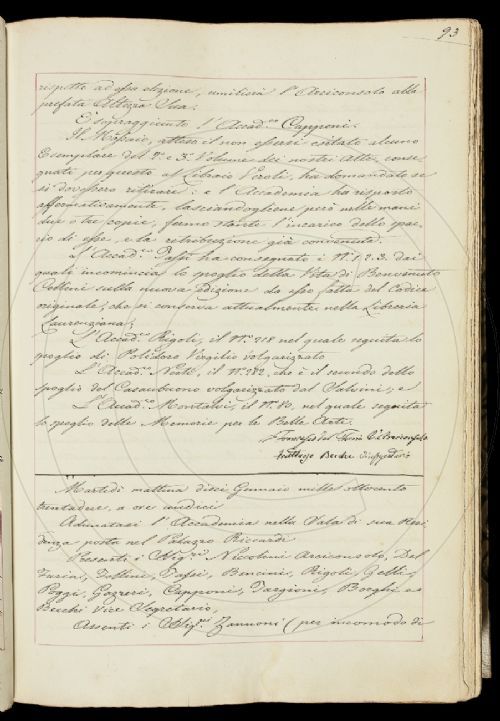 93
rispetto ad essa elezione, umilierà l'Arciconsolo alla
prefata Altezza Sua.
È sopraggiunto l'Accad.co Capponi.
Il Massaio, atteso il non essersi esitato alcuno
Esemplare del 2.o e 3.o Volume dei nostri Atti conse-
gnati per questo al Libraio Veroli, ha domandato se
si dovessero ritirare: e l'Accademia ha risposto
affermativamente, lasciandogliene però nelle mani
due o tre copie, fermo stante l'incarico dello spac-
cio di esse, e la retribuzione già convenuta.
L'Accad.co Tassi ha consegnato i N.i 1. 2. 3. dai
quali incomincia lo spoglio della Vita di Benvenuto
Cellini sulla nuova edizione da esso fatta del Codice
originale, che si conserva attualmente nella Libreria
Laurenziana;
L'Accad.co Rigoli, il N.o 218 nel quale seguita lo
spoglio di Polidoro Virgilio volgarizzato
L'Accad.co Nesti, il N.o 282, che è il secondo dello
spoglio del Casaubuono volgarizzato dal Salvini; e
L'Accad.co Montalvi, il N.o 80, nel quale seguita
lo spoglio delle Memorie per le Belle Arti.
Francesco del Furia Arciconsolo
Fruttuoso Becchi Vicesegretario
Martedì mattina dieci Gennaio mille ottocento
trentadue, a ore undici
Adunatasi l'Accademia nella Sala di sua Resi-
denza posta nel Palazzo Riccardi
Presenti i Sig.ri Niccolini Arciconsolo, Del
Furia, Follini, Tassi, Bencini, Rigoli, Gelli,
Poggi, Gazzeri, Capponi, Targioni, Borghi e
Becchi Vice Segretario,
Assenti i Sig.ri Zannoni (per incomodo di